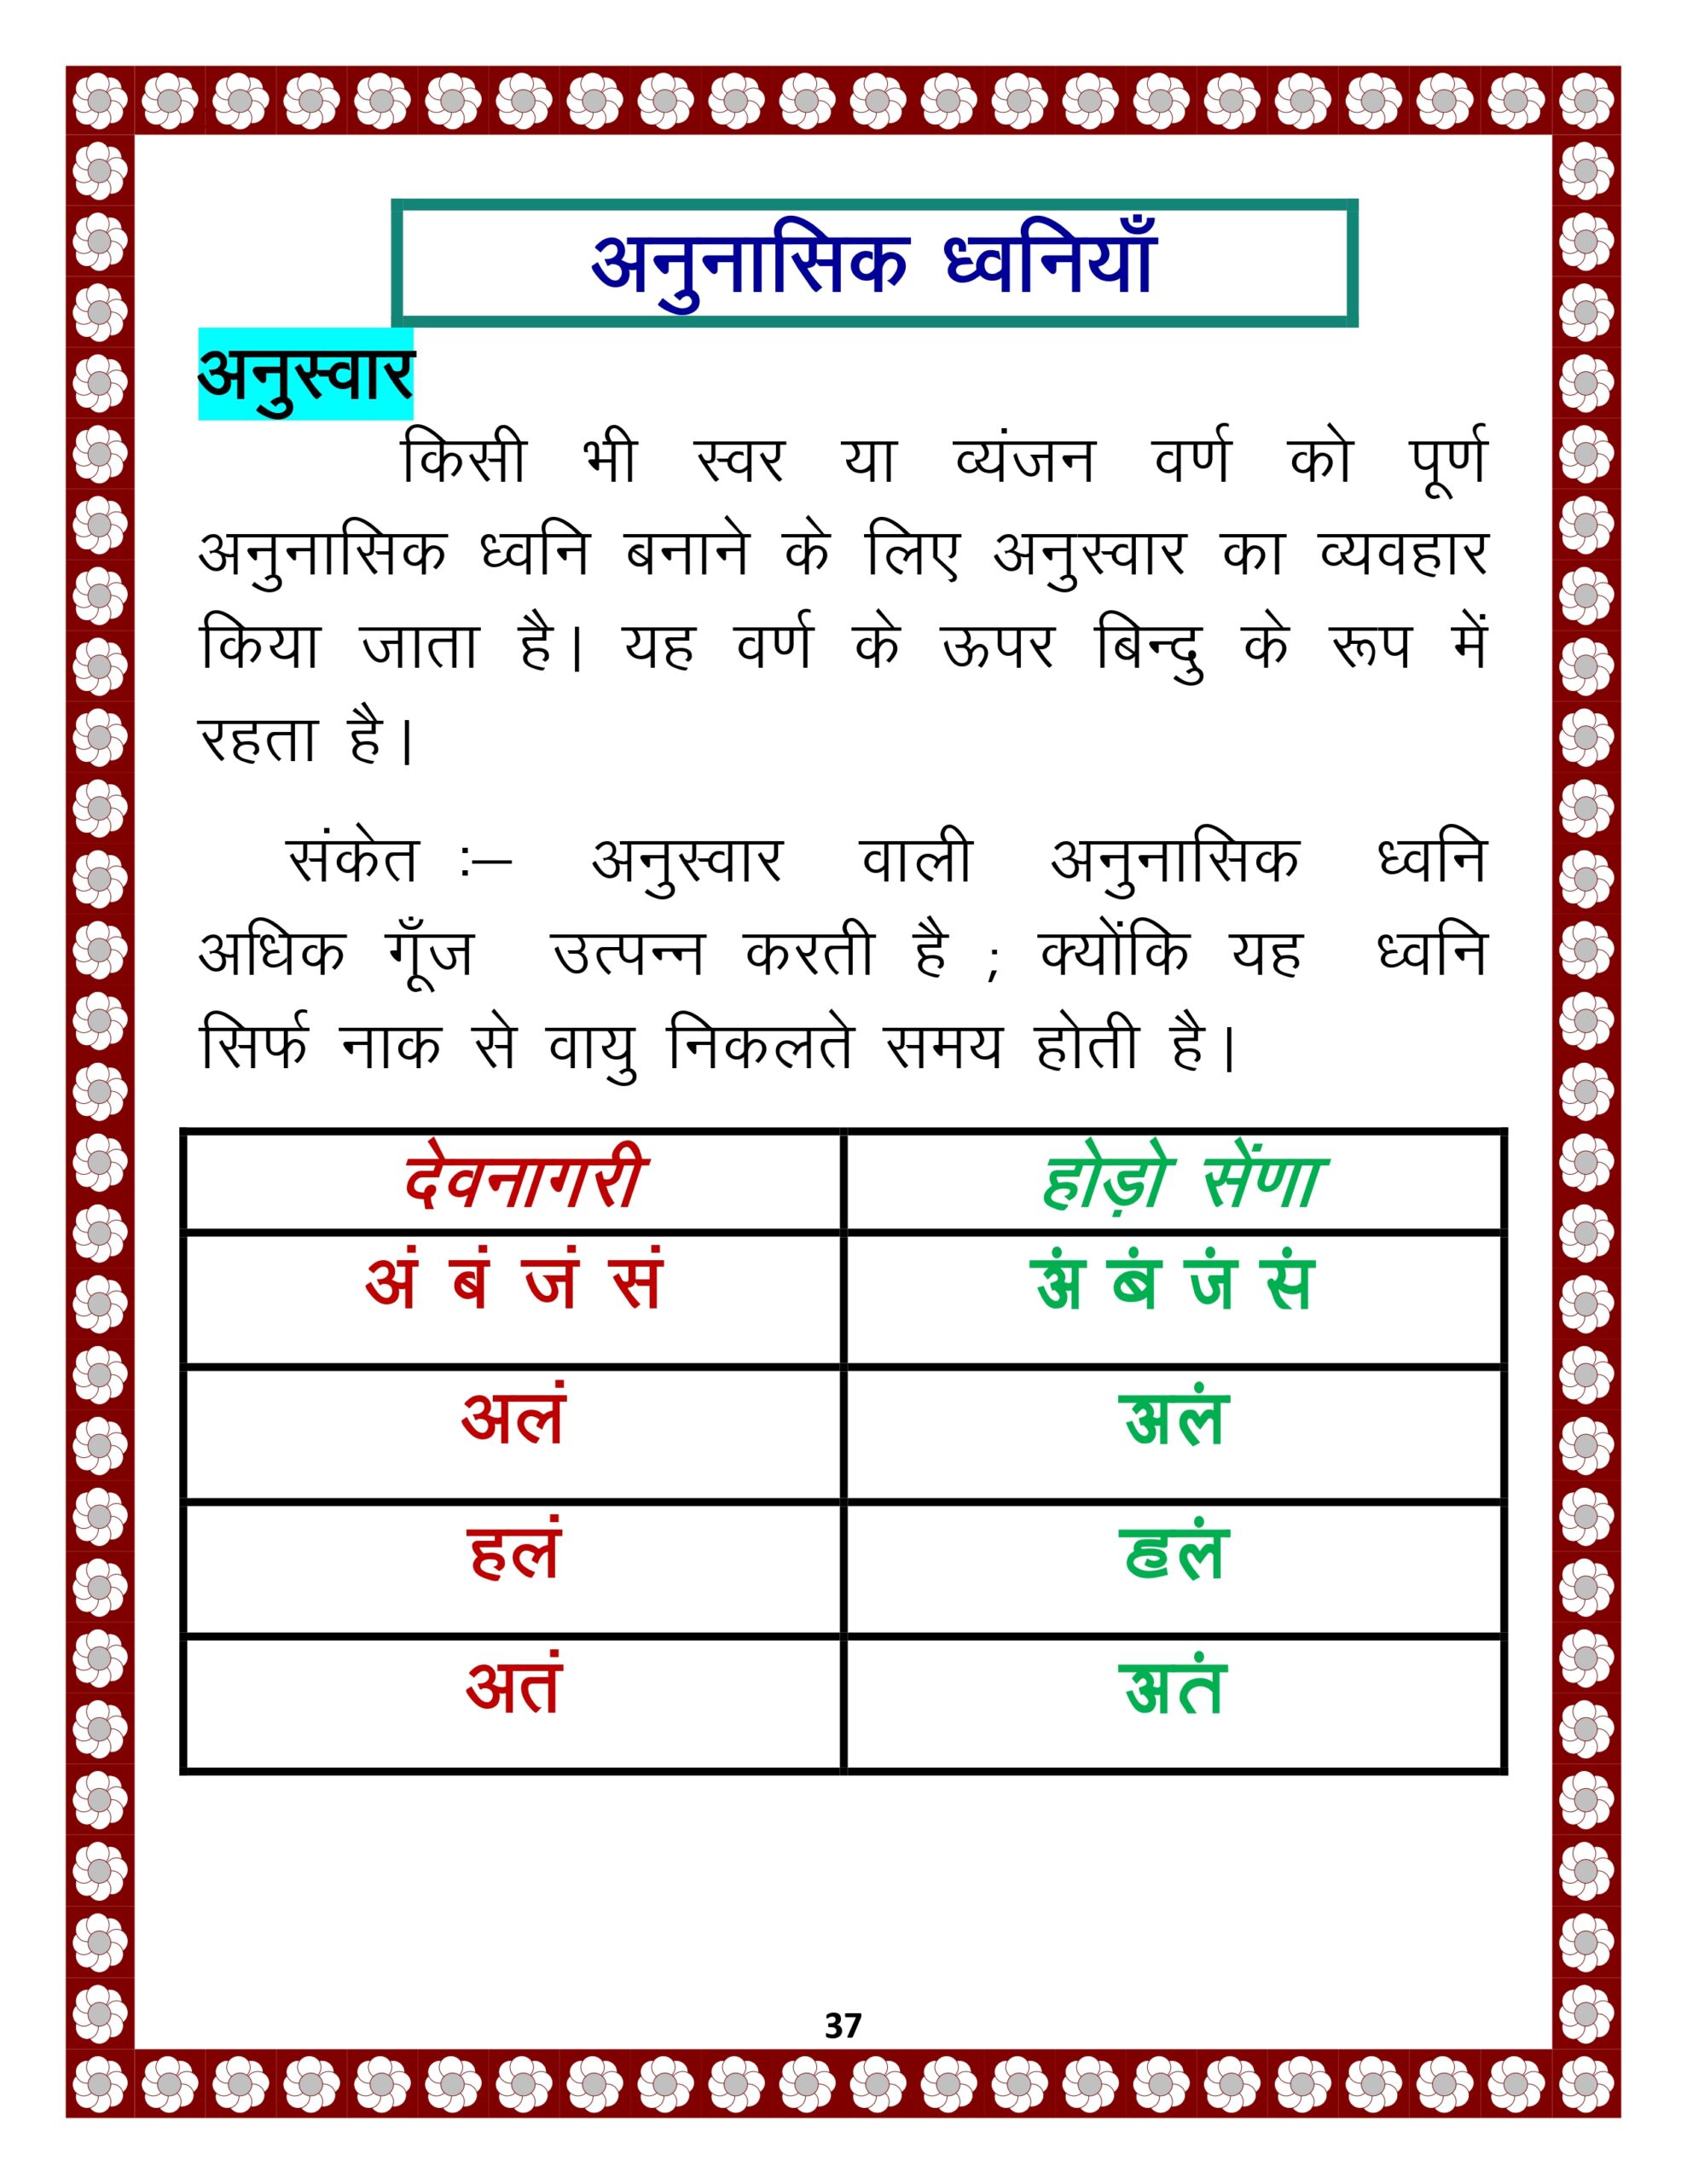 अनुनासिक ध्वनियाँ
अनुस्वार
किसी भी स्वर या व्यंजन वर्ण को पूर्ण
अनुनासिक ध्वनि बनाने के लिए अनुस्वार का व्यवहार
किया जाता है। यह वर्ण के ऊपर बिन्दु के रूप में
रहता है।
संकेत :– अनुस्वार वाली अनुनासिक ध्वनि
अधिक गूँज उत्पन्न करती है ; क्योंकि यह ध्वनि
सिर्फ नाक से वायु निकलते समय होती है।
देवनागरी होड़ो सेंणा
अं बं जं सं अं बं जं सं
अलं अलं
हलं हलं
अतं अतं
37